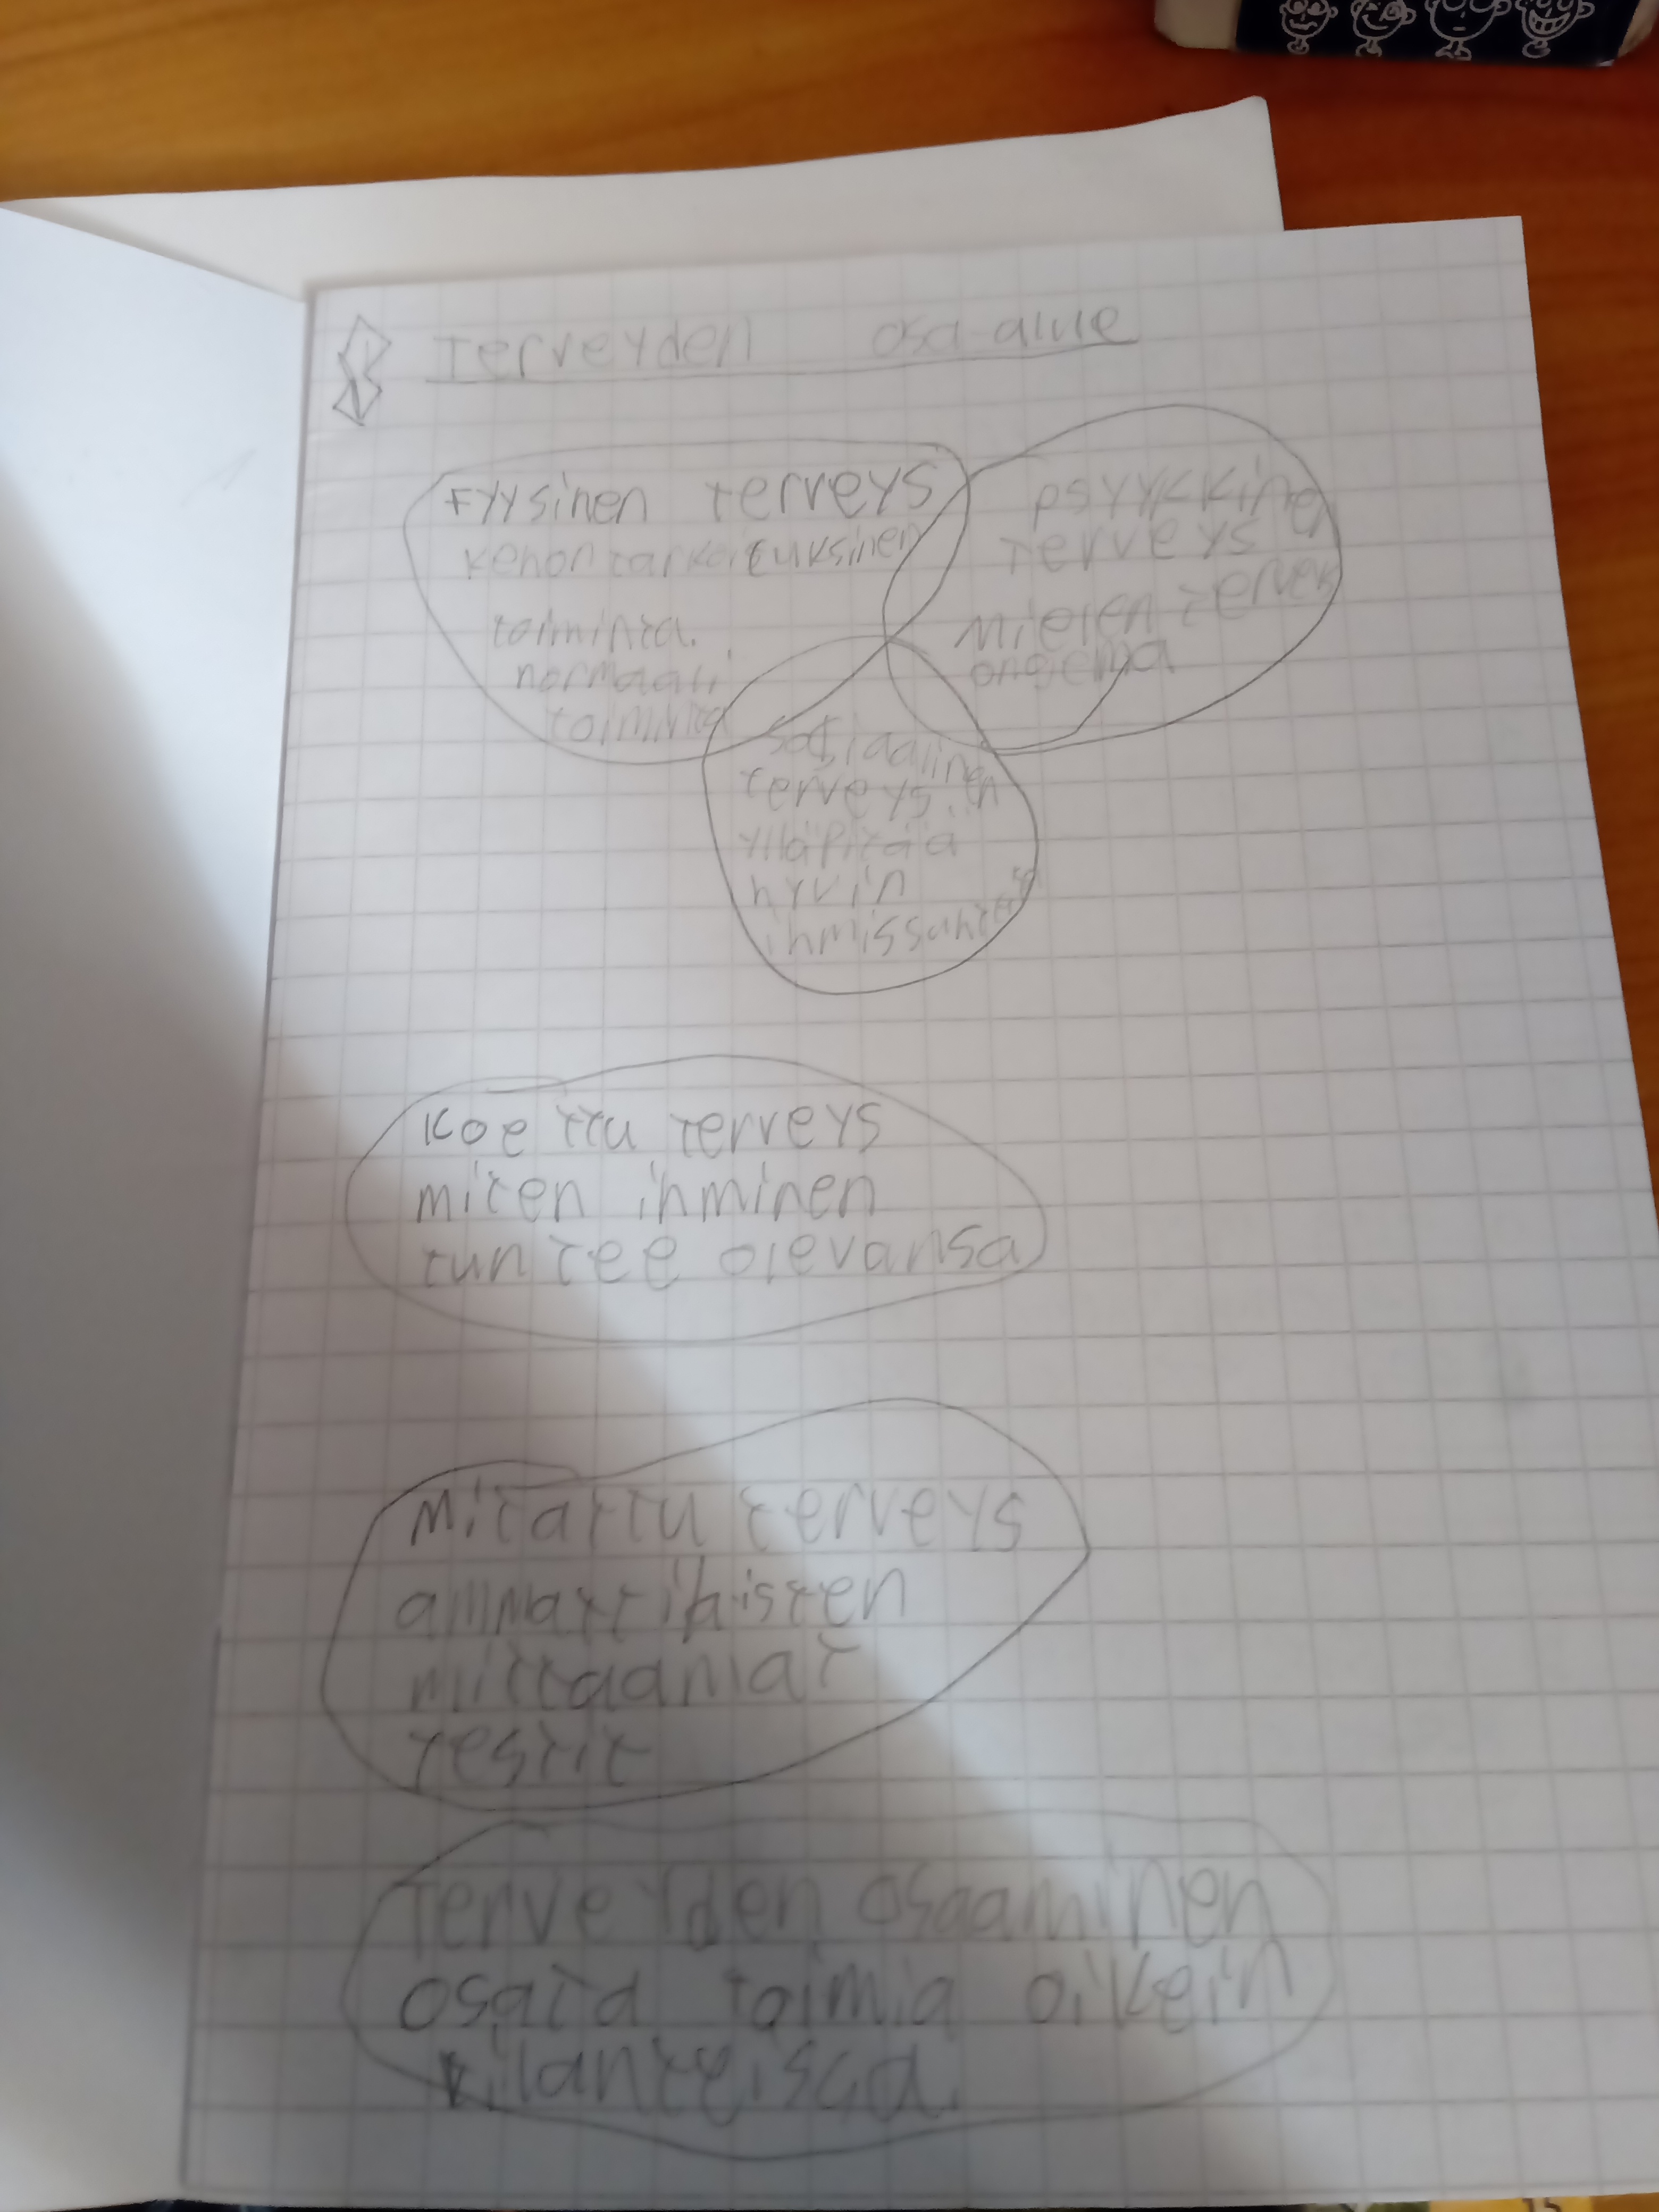 Terveyden osa-alue
Fyysinen terveys
kehon tarkoituksinen
toiminta.
normaali
toiminta
psyykkinen
terveys
mielen terven
ongelma
sosiaalinen
terveys.
ylläpitää
hyvin
ihmissuhteita
Koettu terveys
miten ihminen
tuntee olevansa
Mitattu terveys
ammattihisten
mittaamat
testit
Terveyden osaaminen
osata toimia oikein
tilanteissa
15